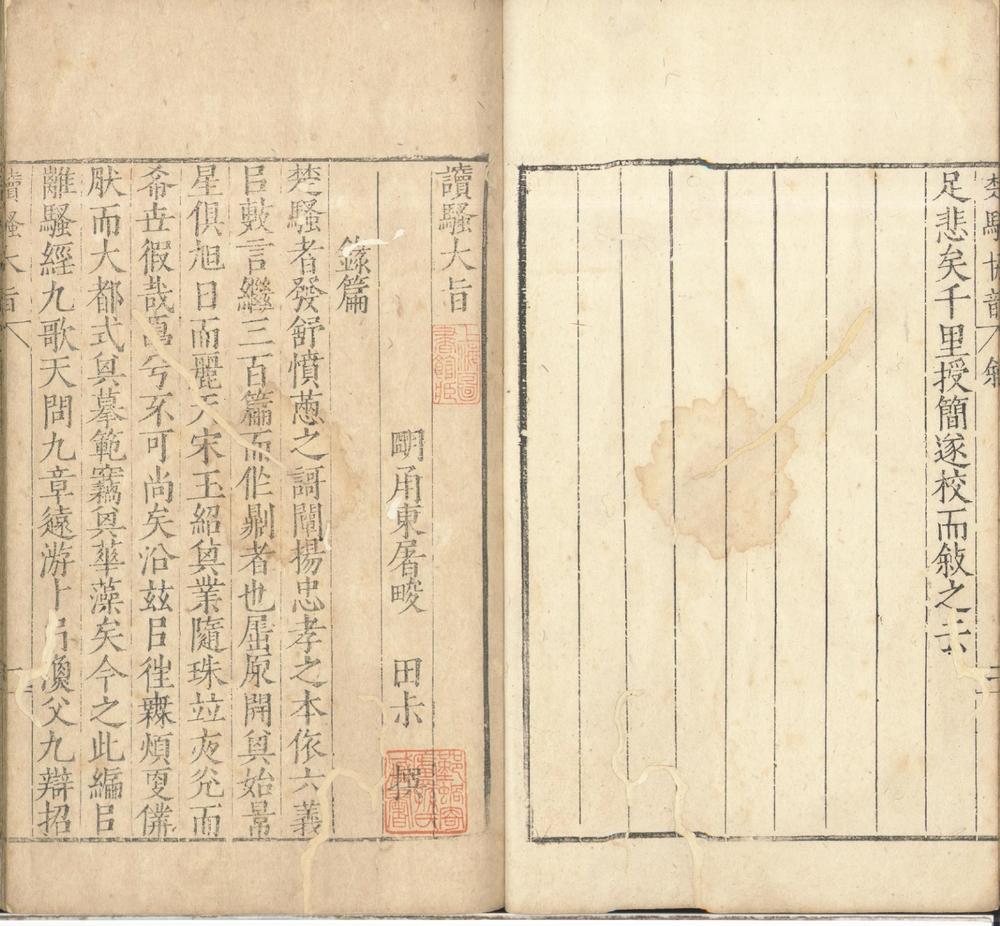 足悲矣千里授簡遂校而敍之云
讀騷大旨
明甬東屠畯 田叔 撰
錄篇
楚騷者發舒憤懣之謌闡揚忠孝之本依六義
㠯敷言繼三百篇而作𠛬者也屈原開其始景
星俱旭日而麗天宋玉紹其業隨珠竝夜光而
希世徦哉𠪚兮不可尚矣沿茲㠯徃霖煩更僕
肰而大都式其摹範竊其華藻矣今之此編㠯
離騷經九歌天問九章遠游卜居漁父九辯招
讀騷大旨